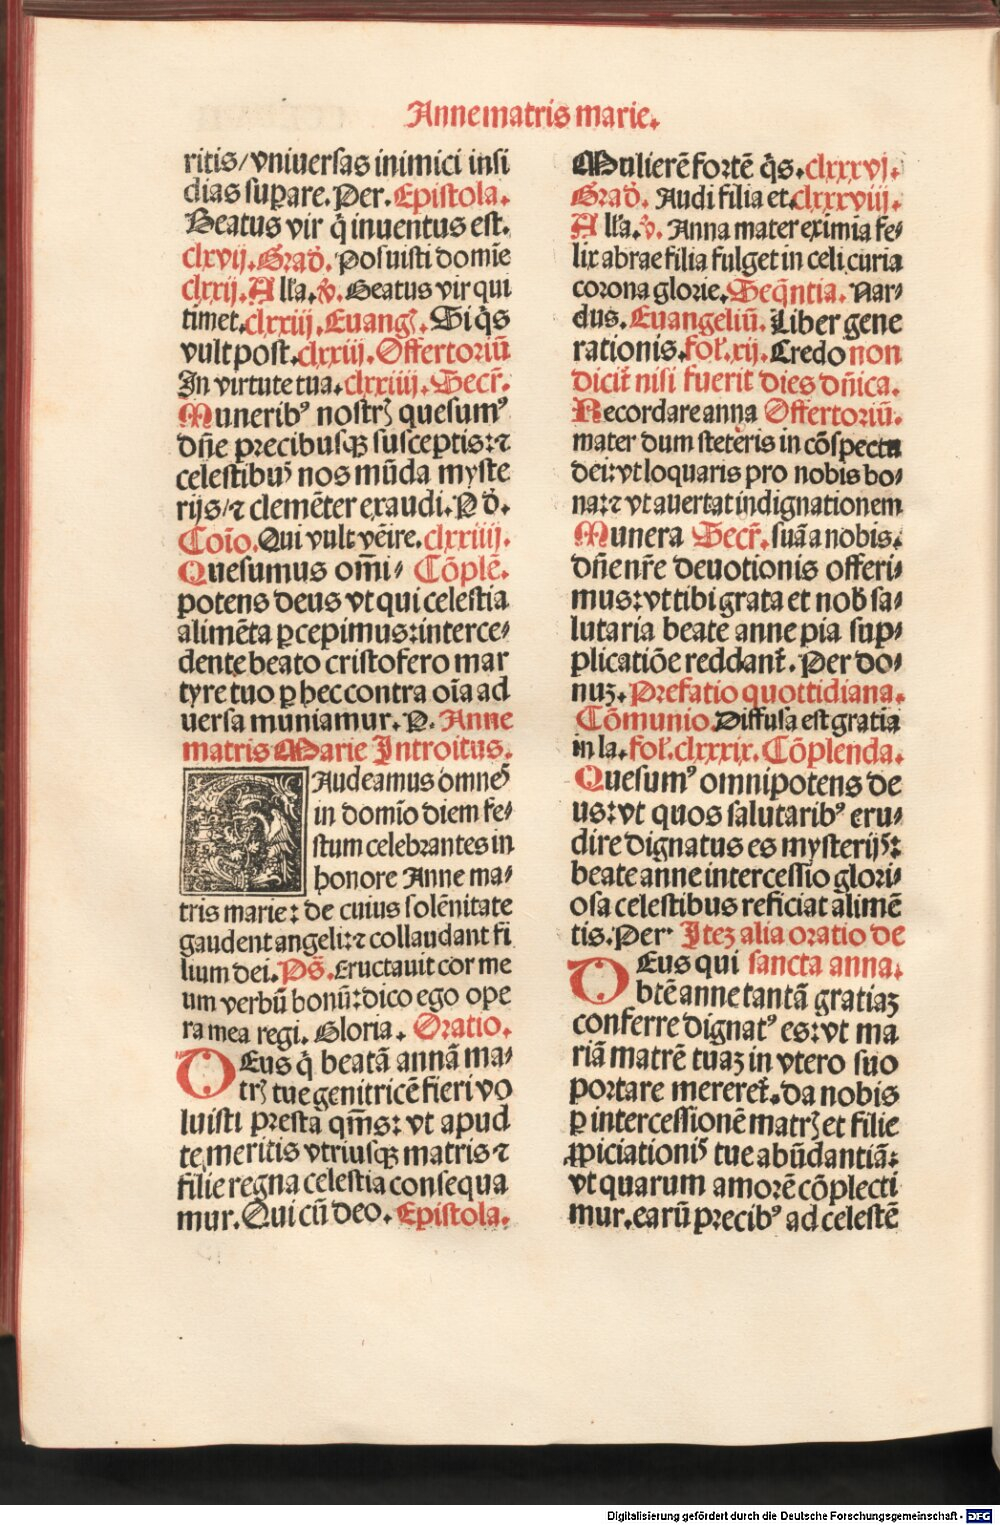 Anne matris marie.
ritis/vniuersas inimici insi
dias suꝑare. Per. Epistola.
Beatus vir q̄ inuentus est.
clxvij. Grad̄. Posuisti domīe
clxxij. All'a. ℣. Beatus vir qui
timet. clxxiij. Euangꝭ. Si q̄s
vult post. clxxiij. Offertoriū
In virtute tua. clxxiiij. Secr̄.
Munerib⁹ nostrꝭ quesum⁹
dn̄e precibusqꝫ susceptis: ⁊
celestibꝰ nos mūda myste
rijs/⁊ clemēter exaudi. P d̄.
Coīo. Qui vult vēire. clxxiiij.
Quesumus om̄i⸗ Cōplē.
potens deus vt qui celestia
alimēta ꝑcepimus: interce⸗
dente beato cristofero mar
tyre tuo ꝑ hec contra oīa ad
uersa muniamur. P. Anne
matris Marie Introitus.
GAudeamus omnes
in domīo diem fe⸗
stum celebrantes in
honore Anne ma⸗
tris marie: de cuius solēnitate
gaudent angeli: ⁊ collaudant fi
lium dei. Ps̄. Eructauit cor me
um verbū bonū: dico ego ope
ra mea regi. Gloria. Oratio.
DEus q̄ beatā annā ma⸗
trꝭ tue genitricē fieri vo
luisti presta qm̄s: vt apud
te meritis vtriusqꝫ matris ⁊
filie regna celestia consequa
mur. Qui cū deo. Epistola.
Mulierē fortē q̄s. clxxxvj.
Grad̄. Audi filia et. clxxxviij.
All'a. ℣. Anna mater eximia fe⸗
lix abrae filia fulget in celi curia
corona glorie. Seq̄ntia. Nar⸗
dus. Euangeliū. Liber gene
rationis. fol. xij. Credo non
dicit̄ nisi fuerit dies dn̄ica.
Recordare anna Offertoriū.
mater dum steteris in cōspectu
dei: vt loquaris pro nobis bo⸗
na: ⁊ vt auertat indignationem
Munera Secr̄. suā a nobis.
dn̄e nr̄e deuotionis offeri⸗
mus: vt tibi grata et nob̄ sa⸗
lutaria beate anne pia sup⸗
plicatiōe reddant̄. Per do⸗
nuꝫ. Prefatio quottidiana.
Cōmunio. Diffusa est gratia
in la. fol. clxxxix. Cōplenda.
Quesum⁹ omnipotens de
us: vt quos salutarib⁹ eru⸗
dire dignatus es mysterijs:
beate anne intercessio glori⸗
osa celestibus reficiat alimē
tis. Per. Iteꝫ alia oratio de
DEus qui sancta anna.
btē anne tantā gratiaꝫ
conferre dignat⁹ es: vt ma
riā matrē tuaꝫ in vtero suo
portare mereret̄. da nobis
ꝑ intercessionē matrꝭ et filie
ꝓpiciationis tue abūdantiā:
vt quarum amorē cōplecti
mur. earū precib⁹ ad celestē
Digitalisierung gefördert durch die Deutsche Forschungsgemeinschaft - DFG